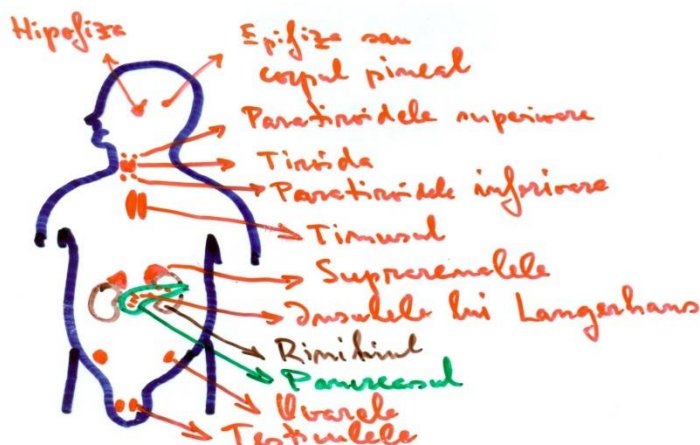 Hipofiza
Epifiza sau
corpul pineal
Paratiroidele superioare
Tiroida
Paratiroidele inferioare
Timusul
Suprarenalele
Insulele lui Langerhans
Rinichiul
Pancreasul
Ovarele
Testiculele